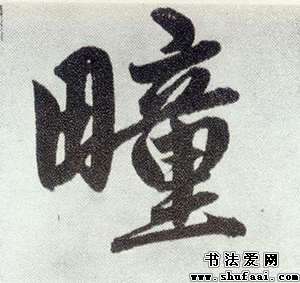 瞳
书法爱网
www.shufaai.com